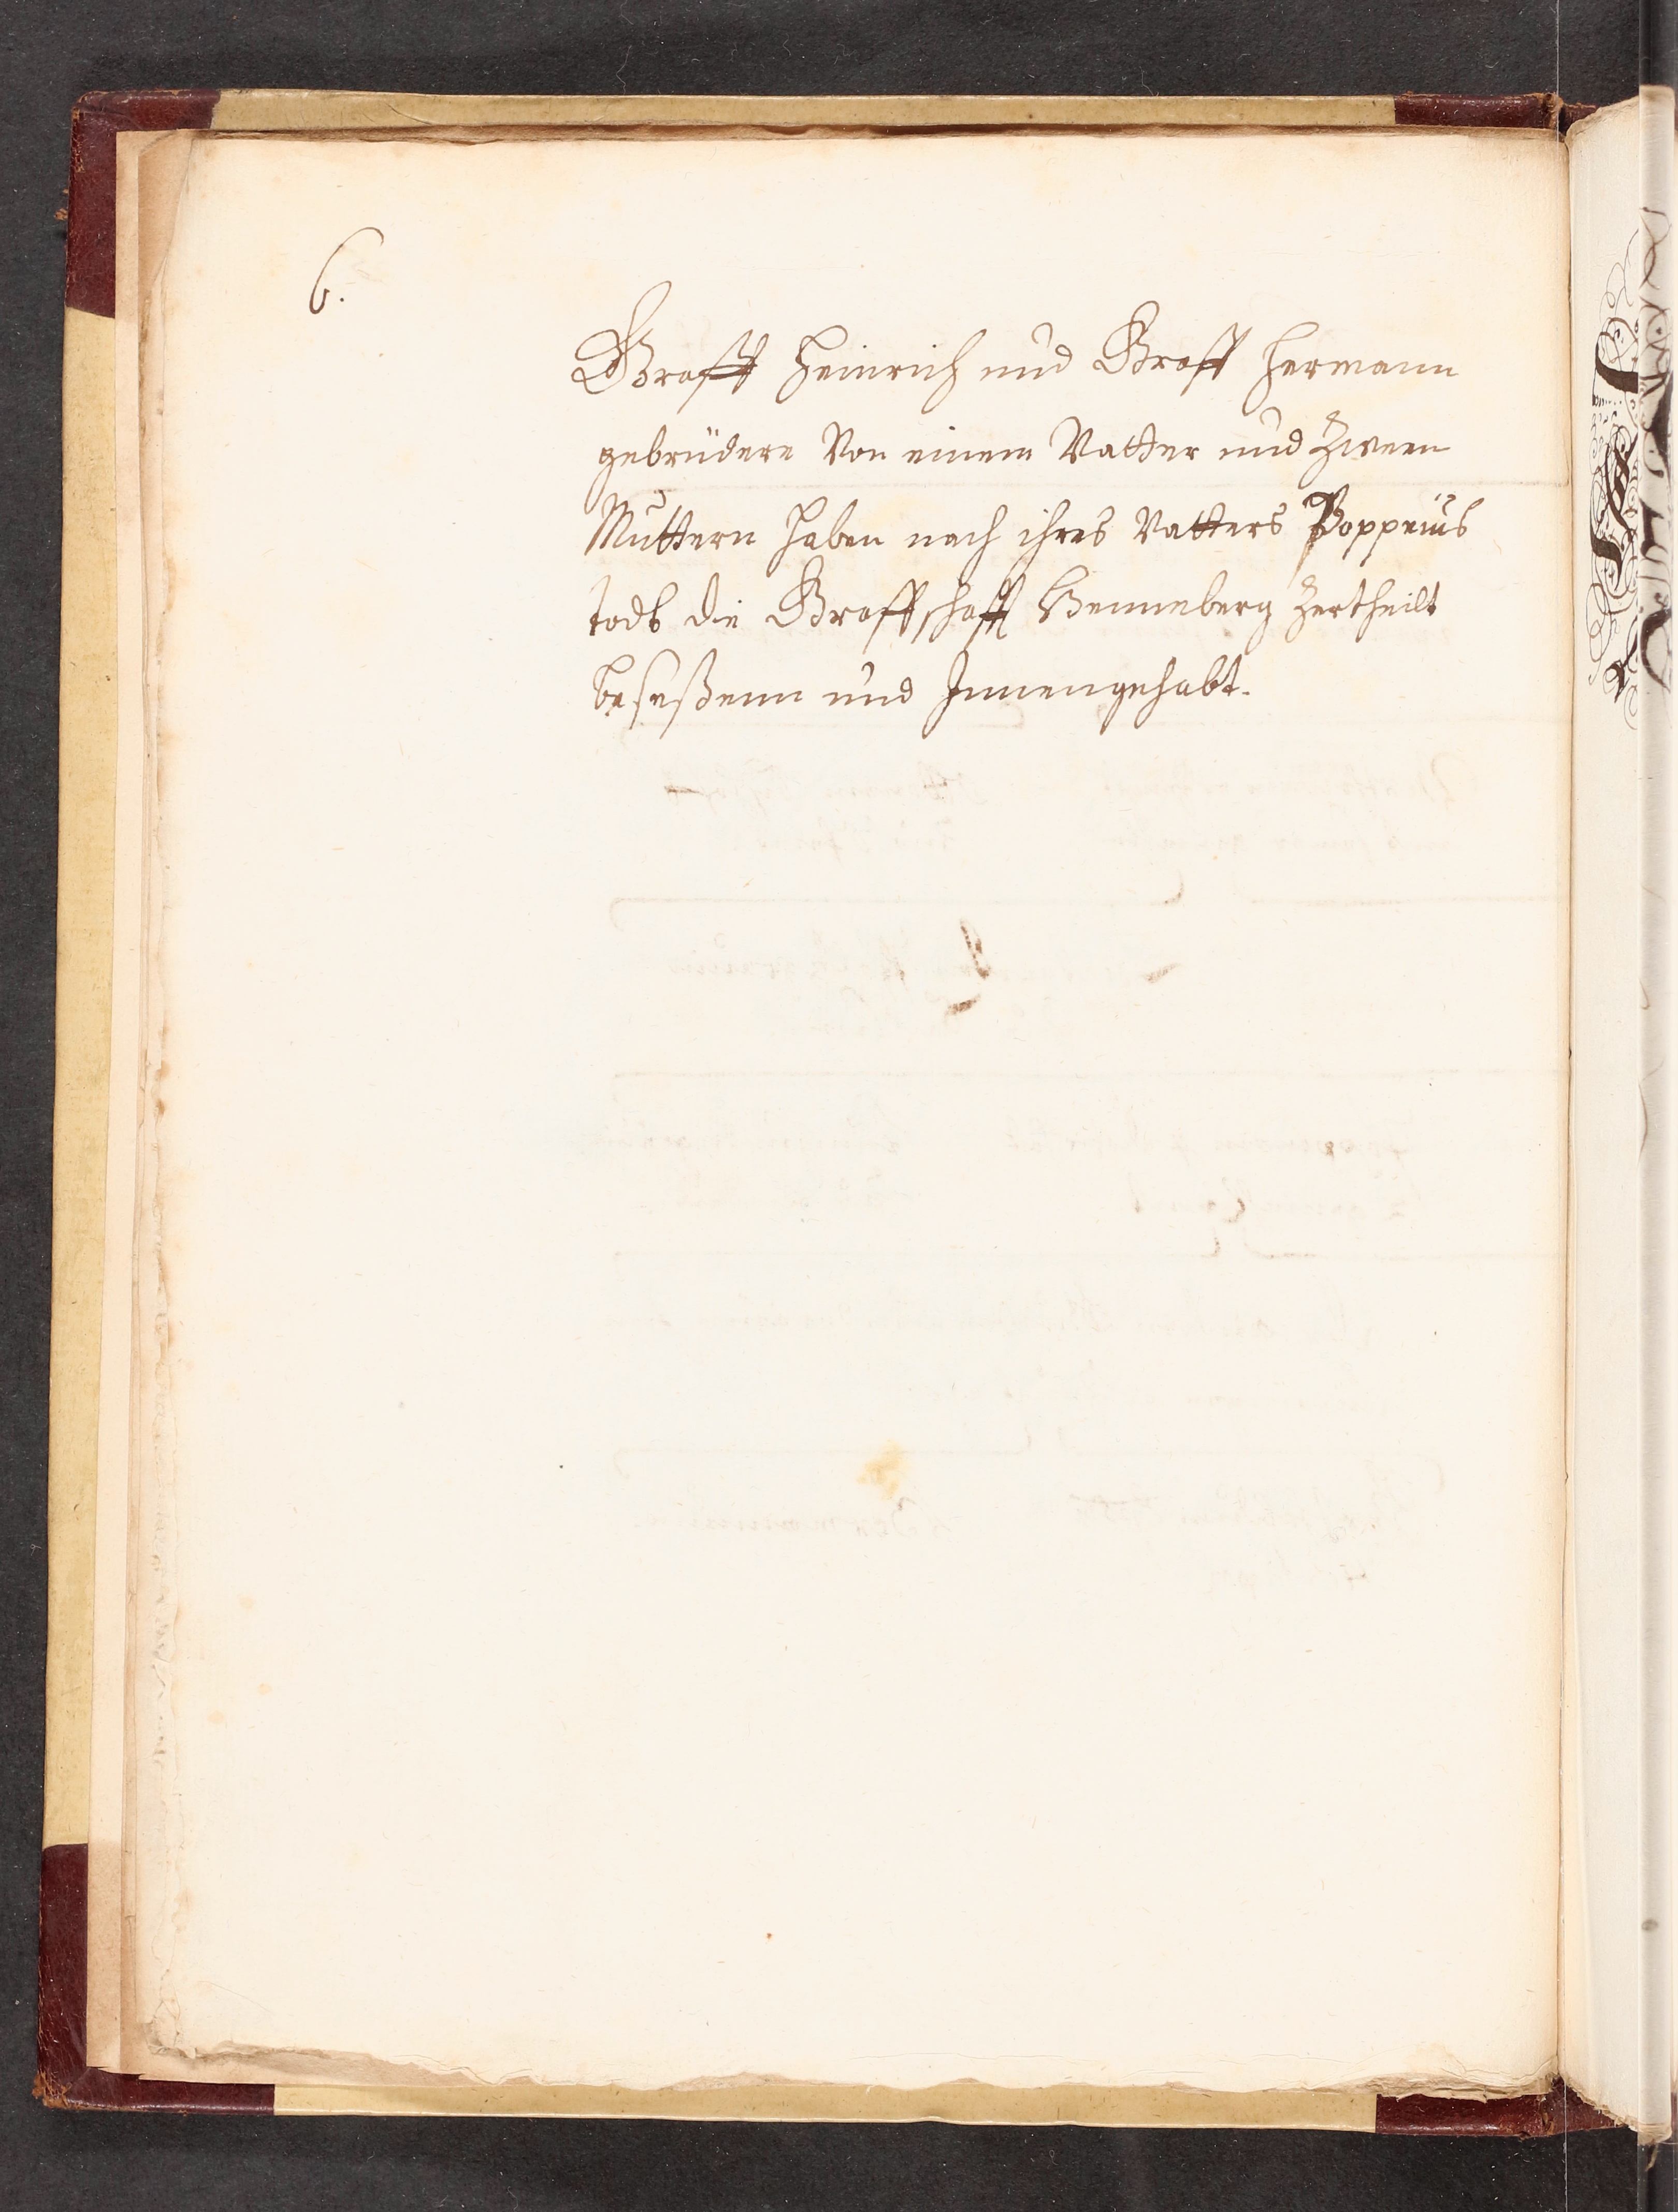 6.
Graff Heinrich und Graff Hermann
gebrüdere Von einem Vatter und Zween
Muttern haben nach ihres Vatters Poppeius
todt die Graffschafft Henneberg Zertheilt
beseßenn und Innengehabt.